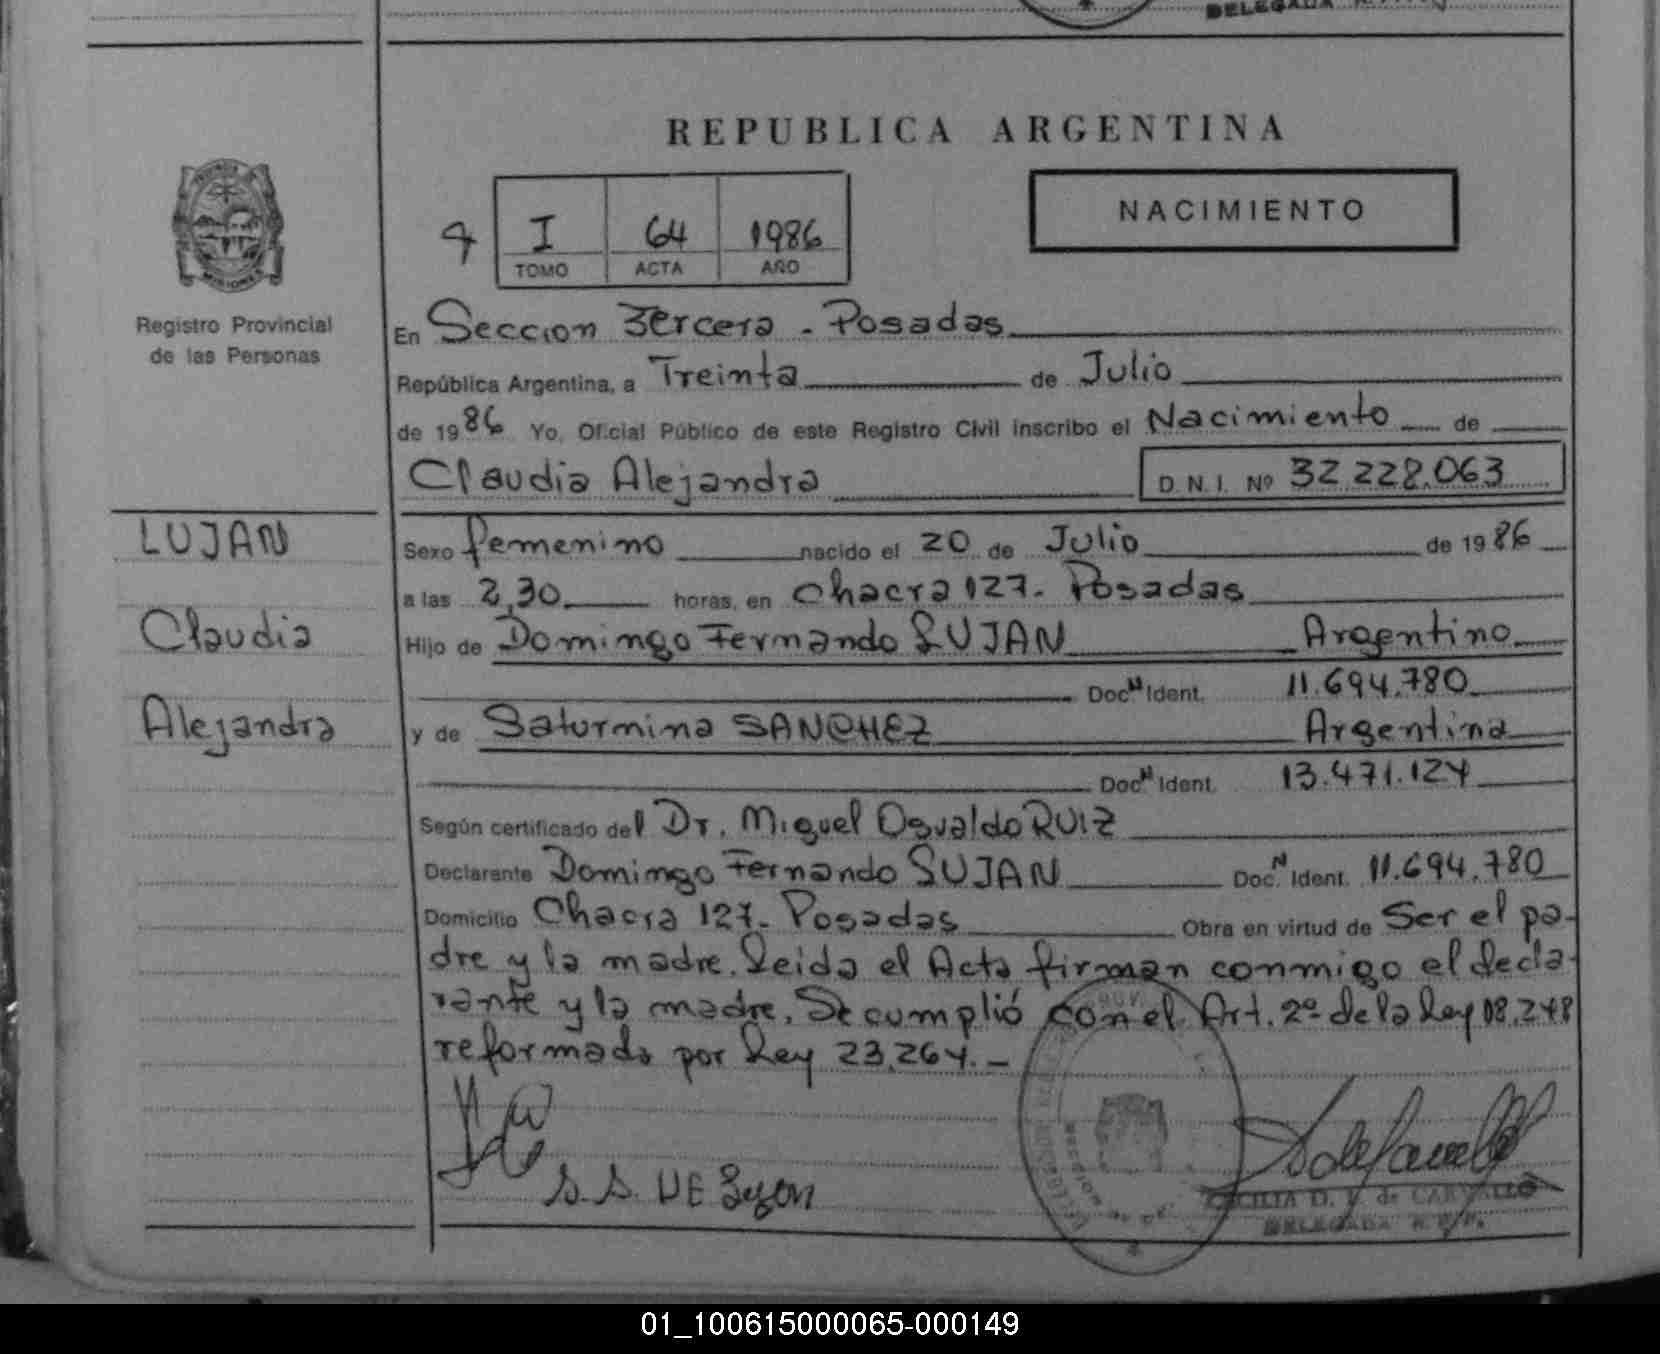 DELEGADA
REPUBLICA ARGENTINA
NACIMIENTO
9 I 64 1986
TOMO ACTA AÑO
Registro Provincial
de las Personas
En Seccion Tercera - Posadas
República Argentina, a Treinta de Julio
de 1986 Yo, Oficial Público de este Registro Civil inscribo el Nacimiento de
Claudia Alejandra D.N.I. Nº 32.228.063
LUJAN
Claudia
Alejandra
Sexo femenino nacido el 20 de Julio de 1986
a las 2,30 horas, en Chacra 127. Posadas
Hijo de Domingo Fernando LUJAN Argentino
Doc. N Ident. 11.694.780
y de Saturnina SANCHEZ Argentina
Doc. N Ident. 13.471.124
Según certificado del Dr. Miguel Osvaldo RUIZ
Declarante Domingo Fernando LUJAN Doc. N Ident. 11.694.780
Domicilio Chacra 127. Posadas Obra en virtud de Ser el pa-
dre y la madre. Leida el Acta firman conmigo el decla-
rante y la madre. Se cumplió con el Art. 2º de la Ley 18.248
reformada por Ley 23.264.-
S. S. DE Lujan
CECILIA D. V. de CARVALLO
DELEGADA R.P.P.
01_100615000065-000149